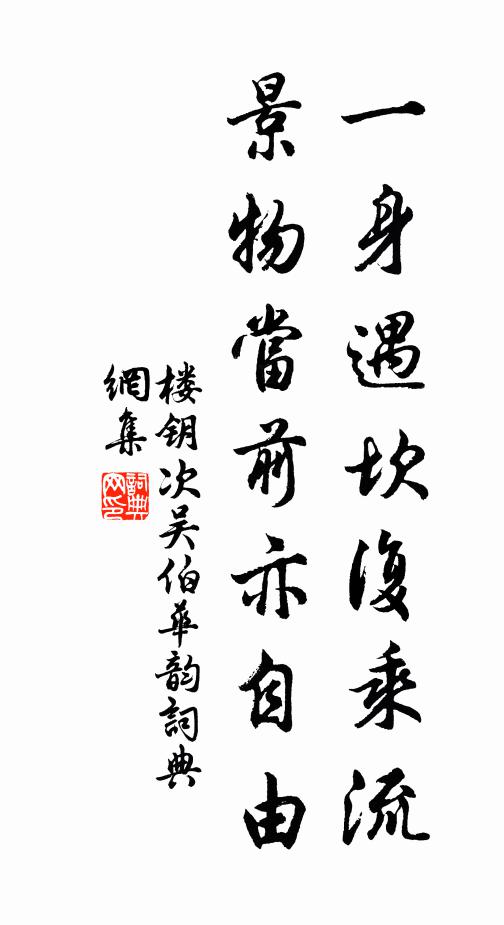 一身遇坎復乘流
景物當前亦自由
楼钥次吴伯華韵詞典
網集
詞典
网印